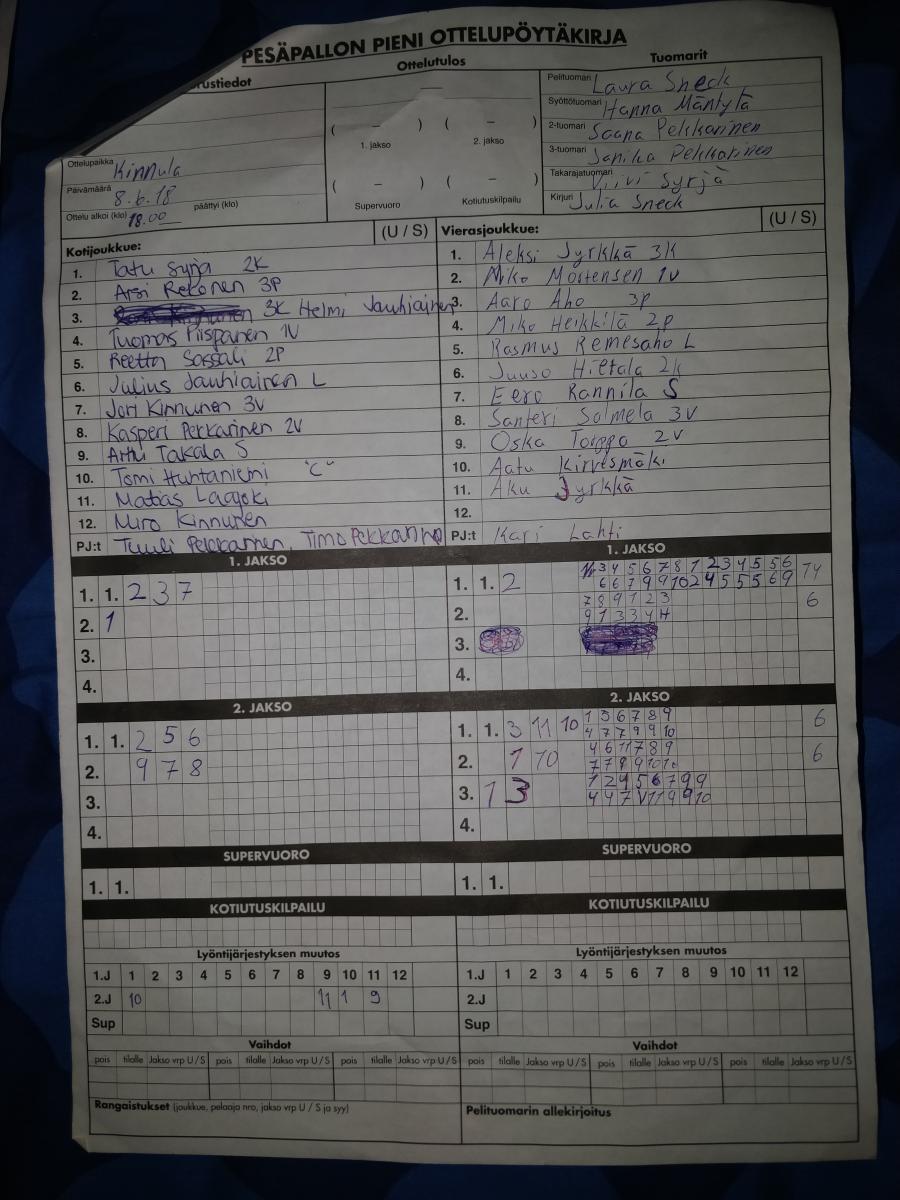 PESÄPALLON PIENI OTTELUPÖYTÄKIRJA
rustiedot Ottelutulos Tuomarit
Pelituomari Laura Sneck
Syöttötuomari Hanna Mäntylä
2-tuomari Saana Pekkarinen
3-tuomari Janika Pekkarinen
Takarajatuomari Viivi Syrjä
Kirjuri Julia Sneck
( – ) ( – )
1. jakso 2. jakso
( – ) ( – )
Supervuoro Kotiutuskilpailu
Ottelupaikka Kinnula
Päivämäärä 8.6.18
Ottelu alkoi (klo) 18.00 päättyi (klo)
Kotijoukkue: (U / S)
1. Tatu Syrjä 2K
2. Arsi Rekonen 3P
3. 3K Helmi Jauhiainen
4. Tuomas Piispanen 1V
5. Reetta Sassali 2P
6. Julius Jauhiainen L
7. Jori Kinnunen 3V
8. Kasperi Pekkarinen 2V
9. Arttu Takala S
10. Tomi Huhtaniemi "C"
11. Matias Laajoki
12. Miro Kinnunen
PJ:t Tuuli Pekkarinen, Timo Pekkarinen
Vierasjoukkue: (U / S)
1. Aleksi Jyrkkä 3K
2. Niko Mortensen 1V
3. Aaro Aho 3P
4. Miko Heikkilä 2P
5. Rasmus Remesaho L
6. Juuso Hietala 2K
7. Eero Rannila S
8. Santeri Salmela 3V
9. Oska Torppa 2V
10. Aatu Kirvesmäki
11. Aku Jyrkkä
12.
PJ:t Kari Lahti
1. JAKSO
1. 1. 2 3 7
2. 1
3.
4.
1. JAKSO
1. 1. 2 3 4 5 6 7 8 1 2 3 4 5 5 6
6 6 7 9 9 10 2 4 5 5 5 6 9 14
2. 7 8 9 1 2 3 6
9 1 3 3 4 H
3.
4.
2. JAKSO
1. 1. 2 5 6
2. 9 7 8
3.
4.
2. JAKSO
1. 1. 3 11 10 1 3 6 7 8 9 6
4 7 7 9 9 10
2. 1 10 4 6 11 7 8 9 6
7 7 8 9 10 10
3. 1 3 1 2 4 5 6 7 9 9
4 4 7 V 11 9 9 10
4.
SUPERVUORO
1. 1.
SUPERVUORO
1. 1.
KOTIUTUSKILPAILU
KOTIUTUSKILPAILU
Lyöntijärjestyksen muutos
1.J 1 2 3 4 5 6 7 8 9 10 11 12
2.J 10 11 1 9
Sup
Lyöntijärjestyksen muutos
1.J 1 2 3 4 5 6 7 8 9 10 11 12
2.J
Sup
Vaihdot
pois tilalle Jakso vrp U / S pois tilalle Jakso vrp U / S pois tilalle Jakso vrp U / S
Vaihdot
pois tilalle Jakso vrp U / S pois tilalle Jakso vrp U / S pois tilalle Jakso vrp U / S
Rangaistukset (joukkue, pelaaja nro, jakso vrp U / S ja syy)
Pelituomarin allekirjoitus